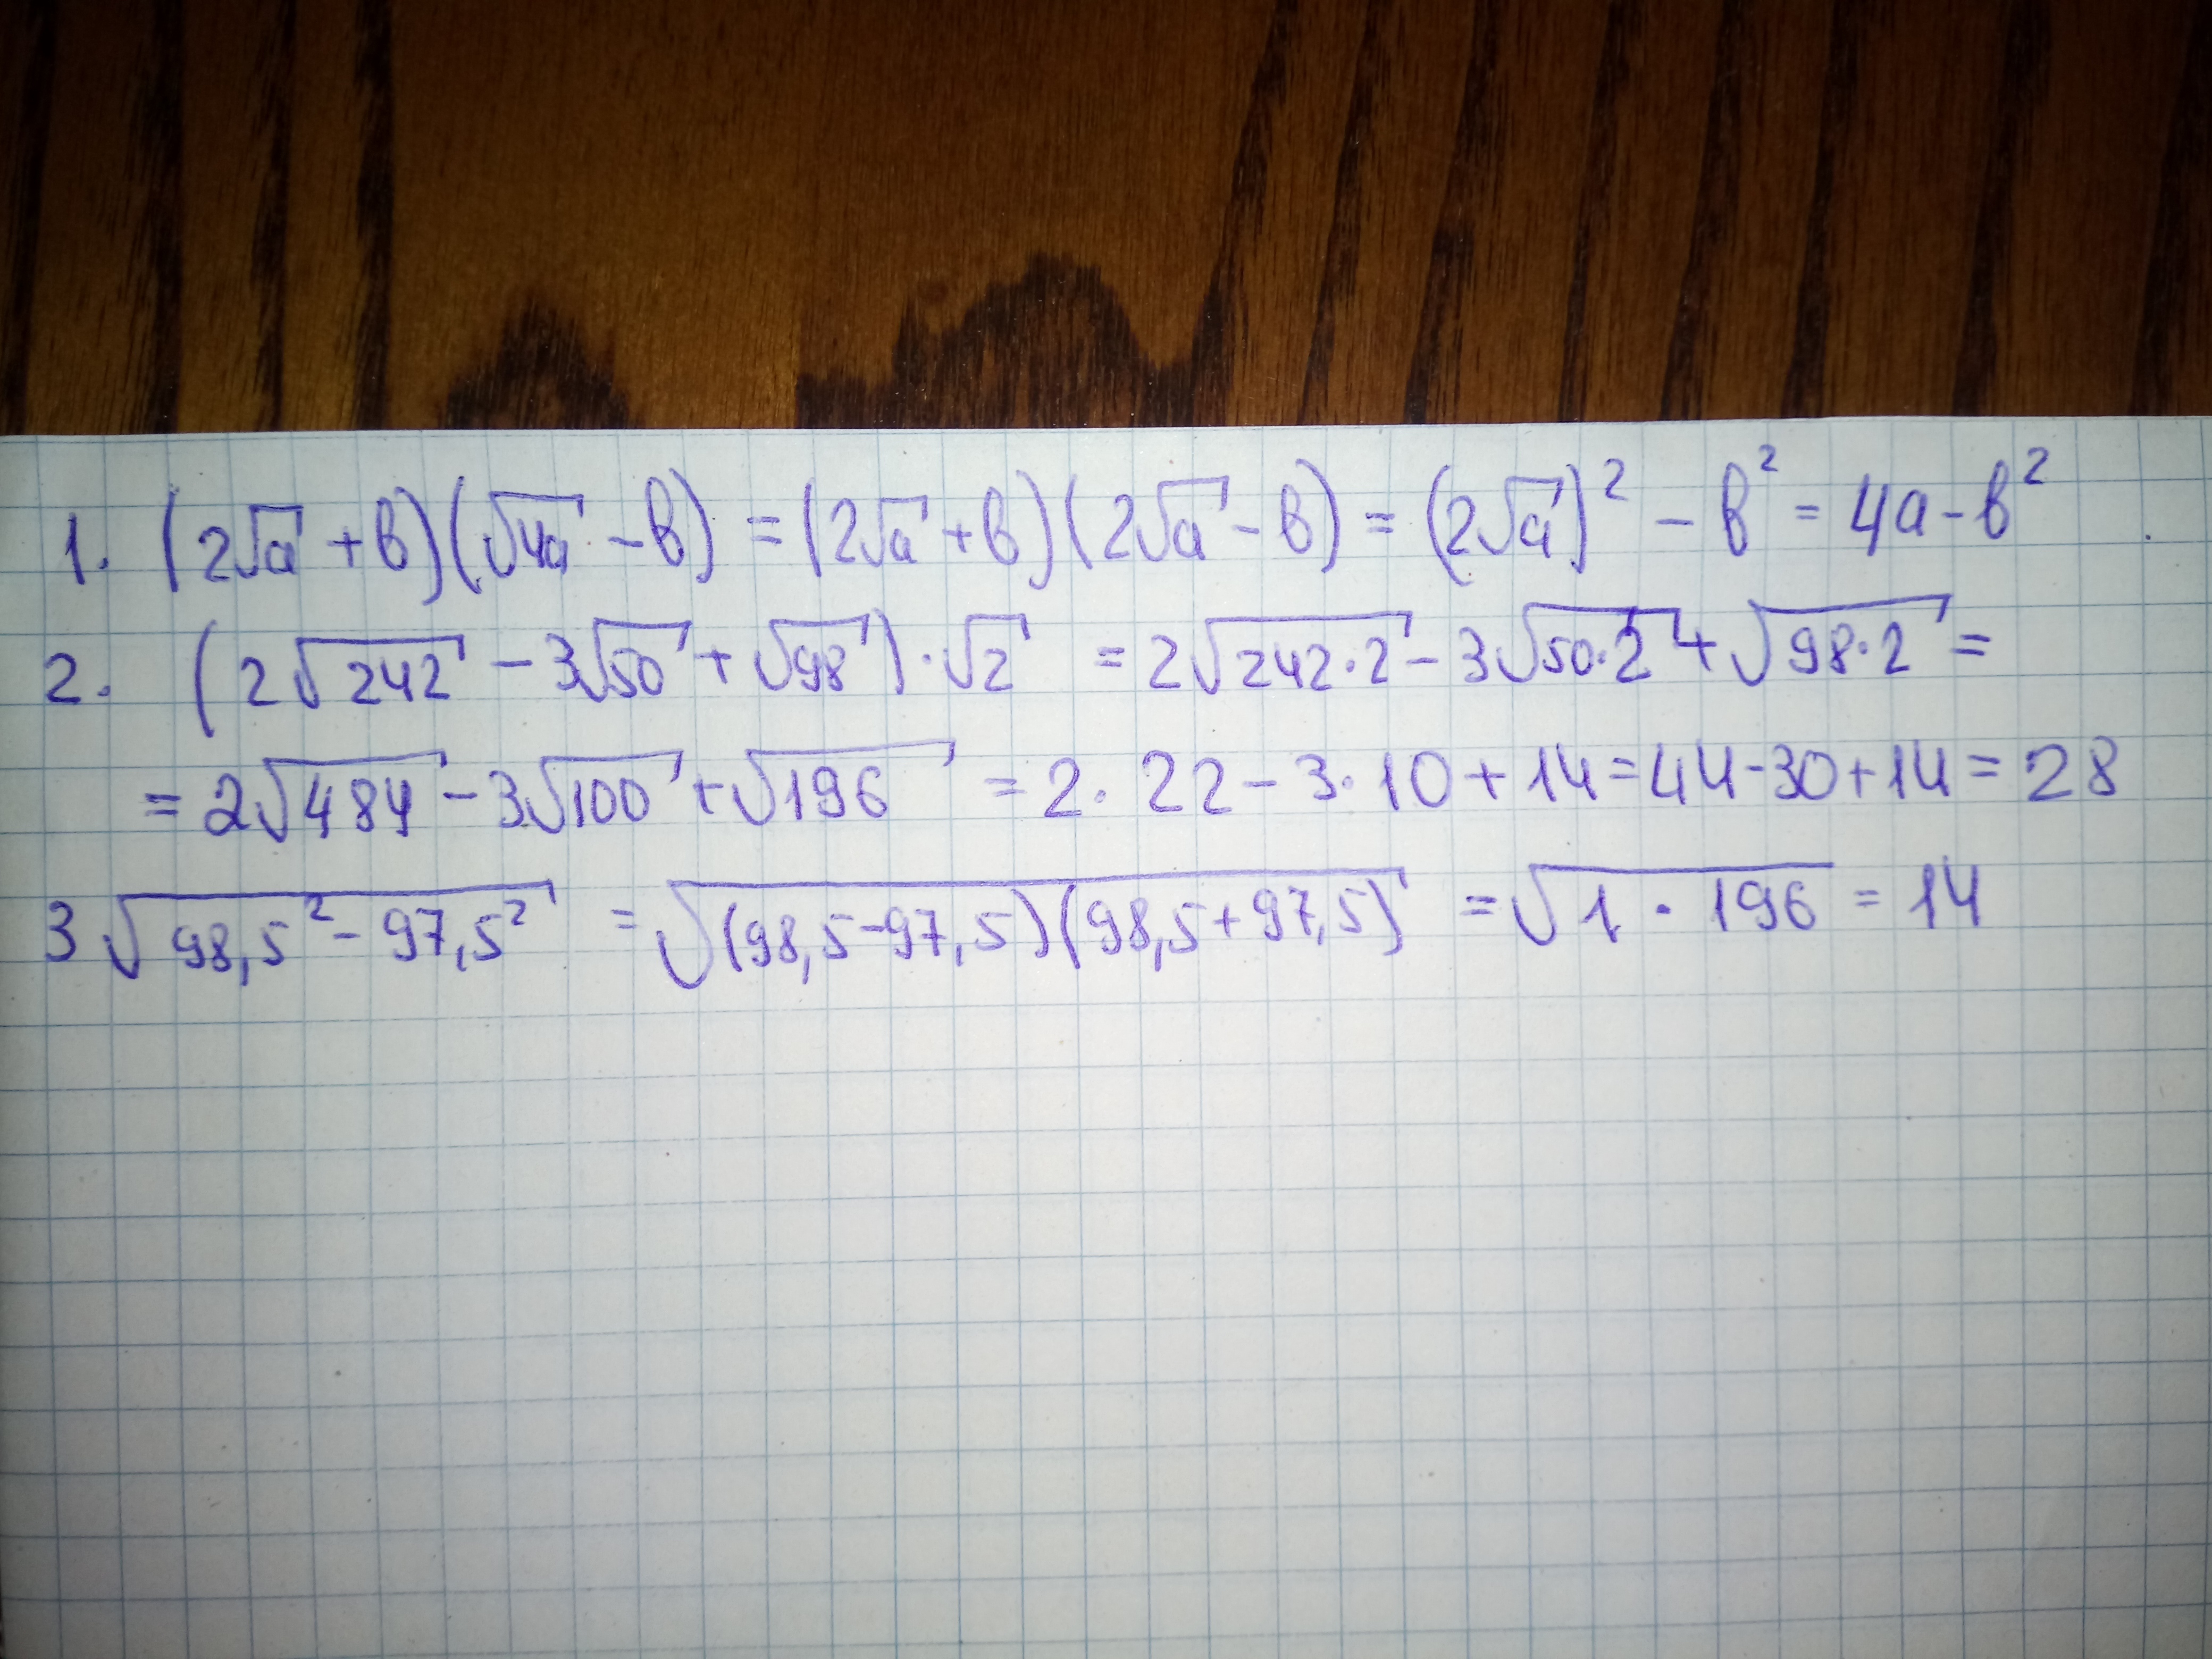 1. (2√a + b)(√4a - b) = (2√a + b)(2√a - b) = (2√a)² - b² = 4a - b²
2. (2√242 - 3√50 + √98) · √2 = 2√242·2 - 3√50·2 + √98·2 =
= 2√484 - 3√100 + √196 = 2 · 22 - 3 · 10 + 14 = 44 - 30 + 14 = 28
3 √98,5² - 97,5² = √(98,5-97,5)(98,5+97,5) = √1 · 196 = 14